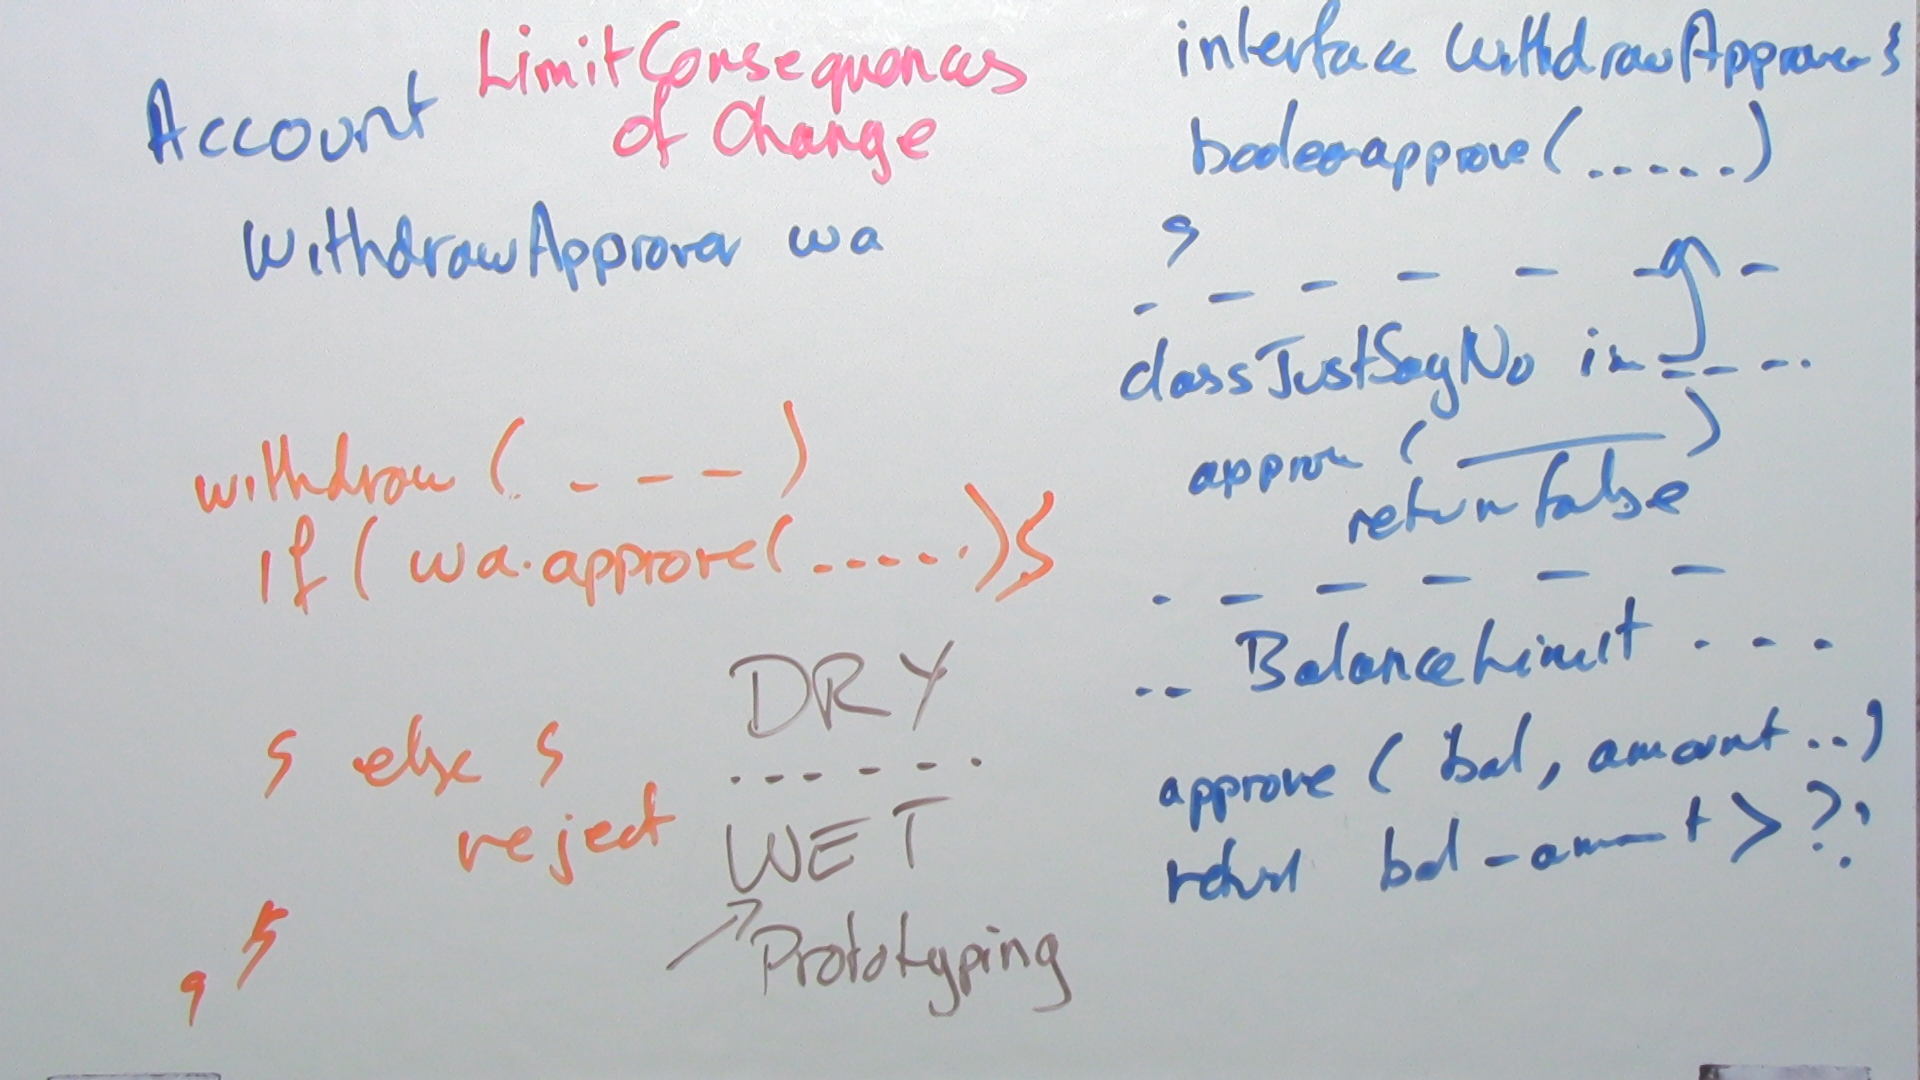 Account
Limit Consequences
of Change
WithdrawApprover wa
withdraw ( - - - )
if ( wa.approve( ..... ) {
} else {
reject
}
}
DRY
.......
WET
Prototyping
interface WithdrawApprover {
boolean approve ( ..... )
}
class JustSayNo im - - - .
approve ( )
return false
.. BalanceLimit ...
approve ( bal, amount .. )
return bal - amount > ?;